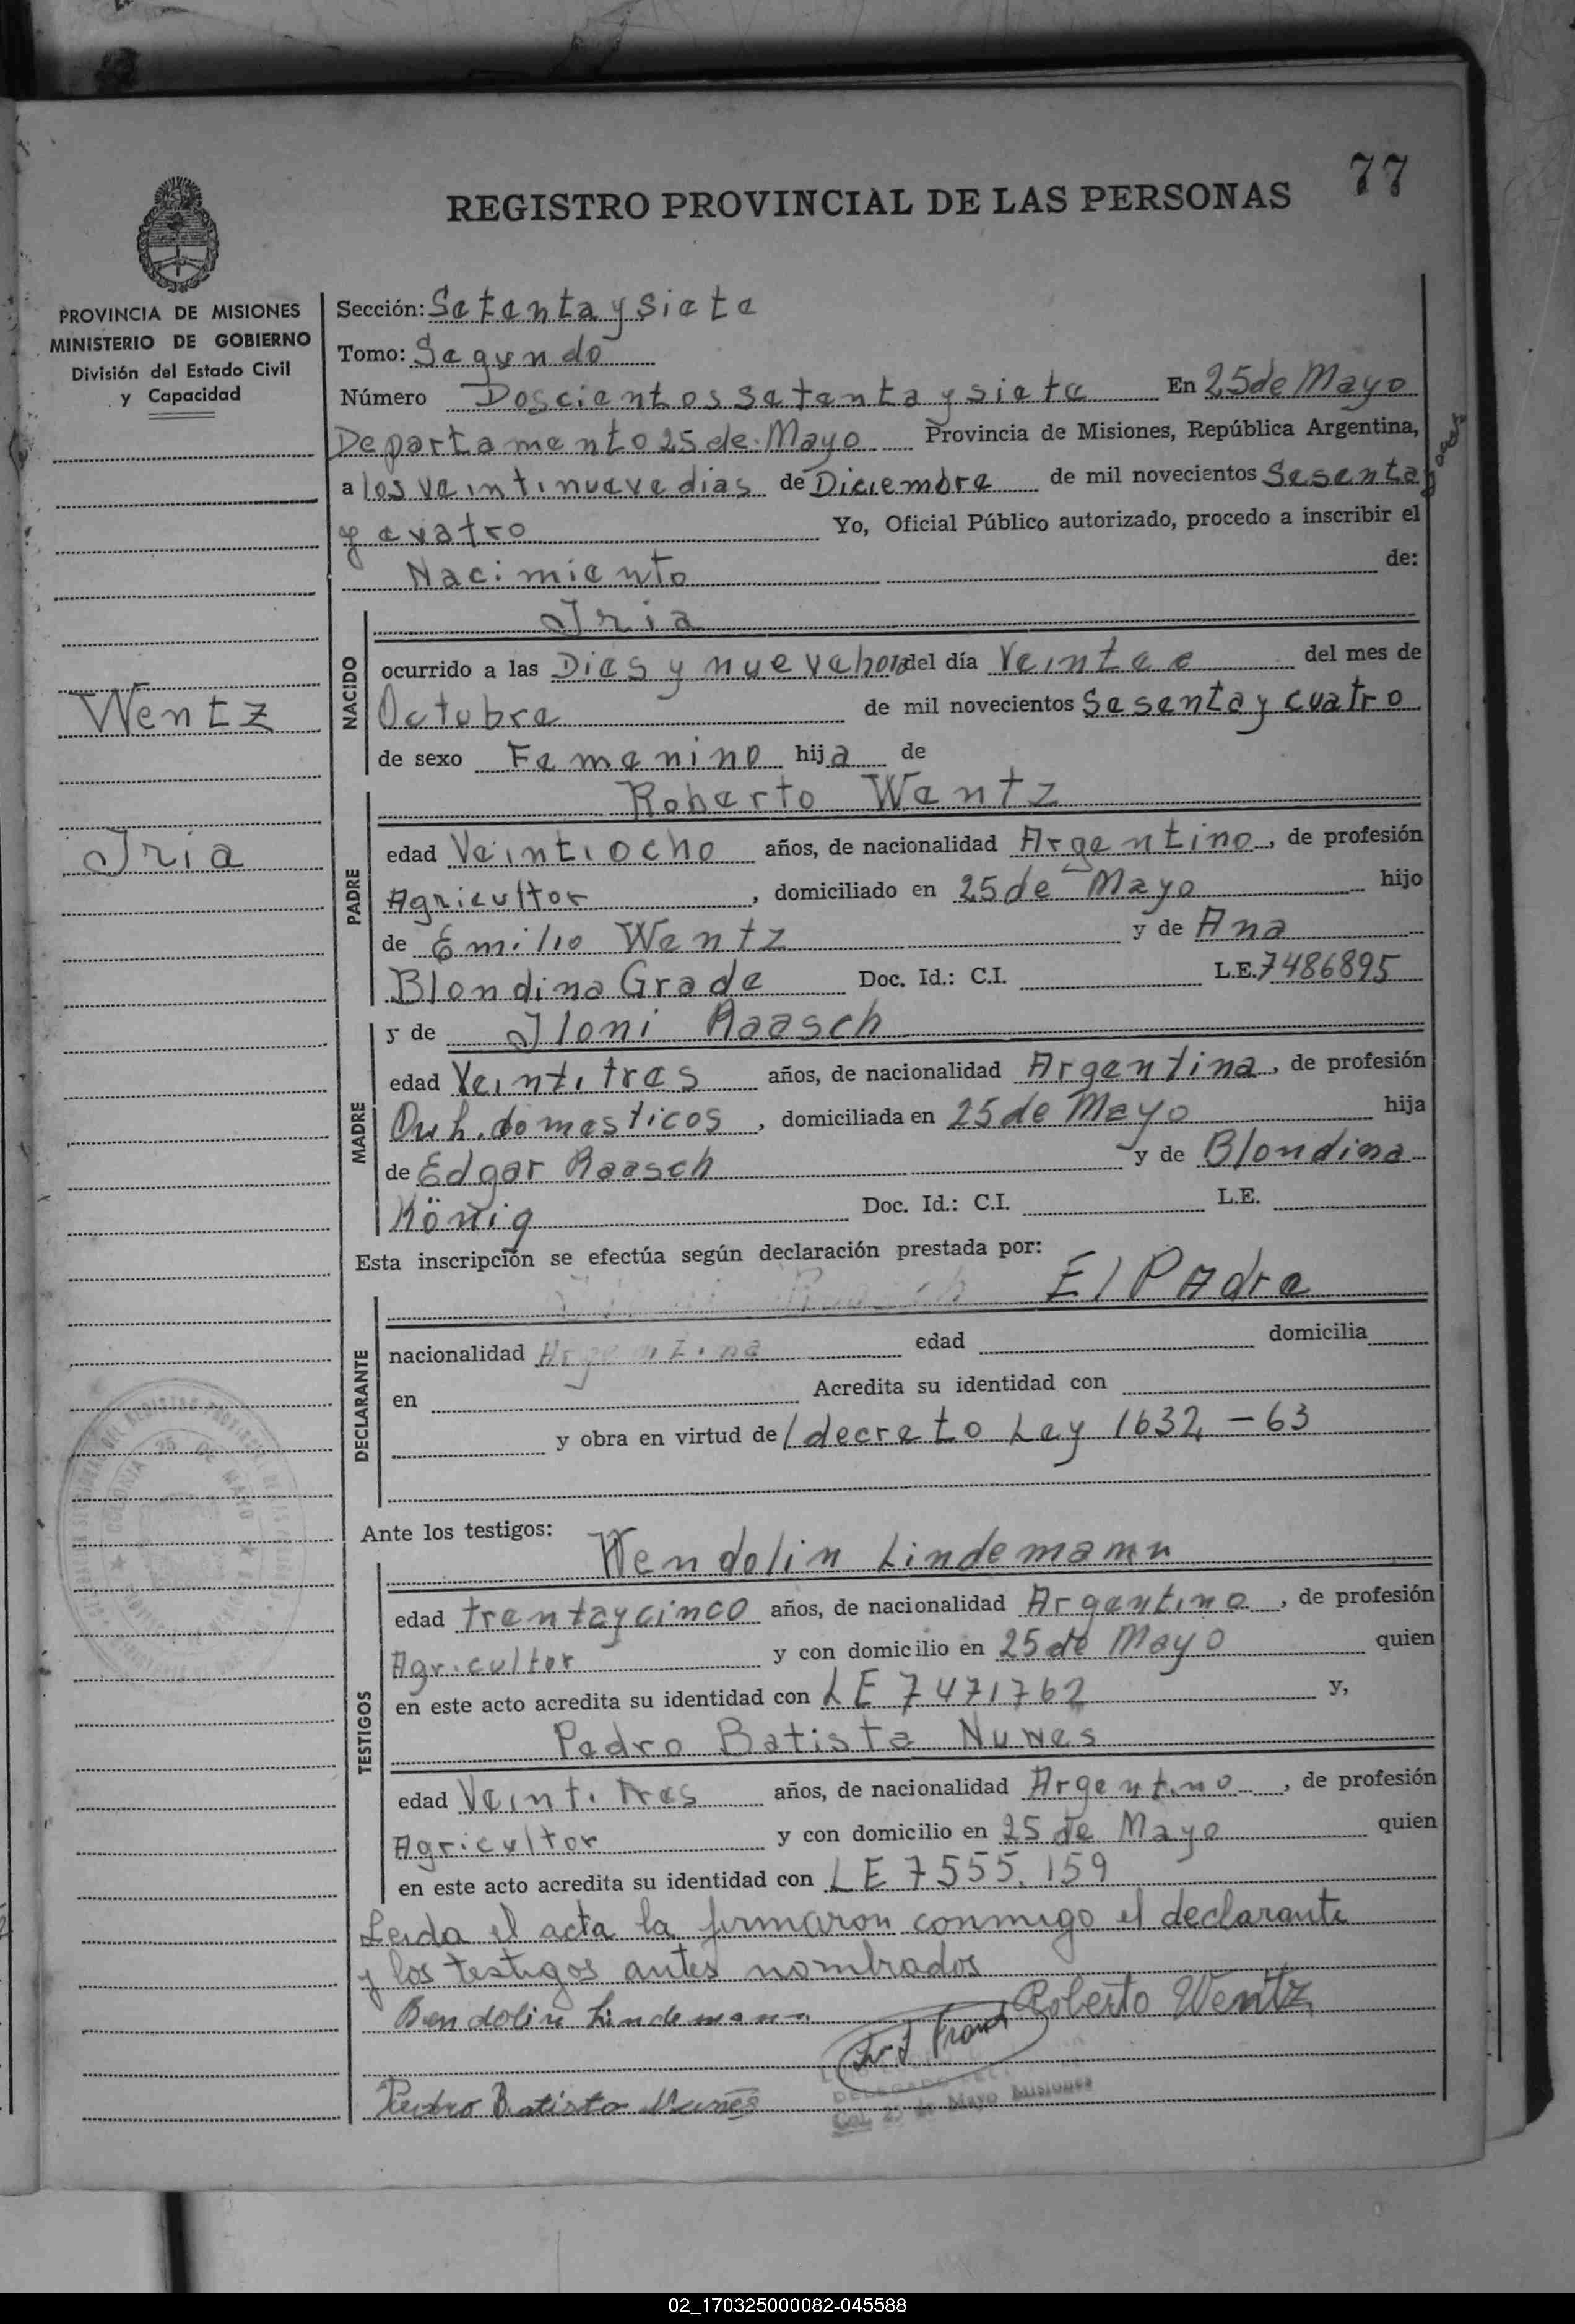 77
REGISTRO PROVINCIAL DE LAS PERSONAS
PROVINCIA DE MISIONES
MINISTERIO DE GOBIERNO
División del Estado Civil
y Capacidad
Wentz
Iria
Sección: Setenta y siete
Tomo: Segundo
Número Doscientos setenta y siete En 25 de Mayo
Departamento 25 de Mayo Provincia de Misiones, República Argentina,
a los veintinueve dias de Diciembre de mil novecientos Sesenta
y cuatro Yo, Oficial Público autorizado, procedo a inscribir el
Nacimiento de:
NACIDO
Iria
ocurrido a las Dies y nueve horas del día Veinte del mes de
Octubre de mil novecientos Sesenta y cuatro
de sexo Femenino hija de
PADRE
Roberto Wentz
edad Veintiocho años, de nacionalidad Argentino, de profesión
Agricultor, domiciliado en 25 de Mayo hijo
de Emilio Wentz y de Ana
Blondina Grade Doc. Id.: C.I. L.E. 7486895
MADRE
y de Iloni Raasch
edad Veintitres años, de nacionalidad Argentina, de profesión
domesticos, domiciliada en 25 de Mayo hija
de Edgar Raasch y de Blondina
König Doc. Id.: C.I. L.E.
Esta inscripción se efectúa según declaración prestada por:
El PAdre
DECLARANTE
nacionalidad Argentina edad domicilia
en Acredita su identidad con
y obra en virtud de l decreto Ley 1632 - 63
Ante los testigos:
TESTIGOS
Wendolin Lindemann
edad trentaycinco años, de nacionalidad Argentino, de profesión
Agricultor y con domicilio en 25 de Mayo quien
en este acto acredita su identidad con LE 7471762 y,
Pedro Batista Nunes
edad Veintitres años, de nacionalidad Argentino, de profesión
Agricultor y con domicilio en 25 de Mayo quien
en este acto acredita su identidad con LE 7555.159
Leida el acta la firmaron conmigo el declarante
y los testigos antes nombrados
Bendolin Lindemann Roberto Wentz
Pedro Batista Nunes
Col. 25 de Mayo Misiones
02_170325000082-045588